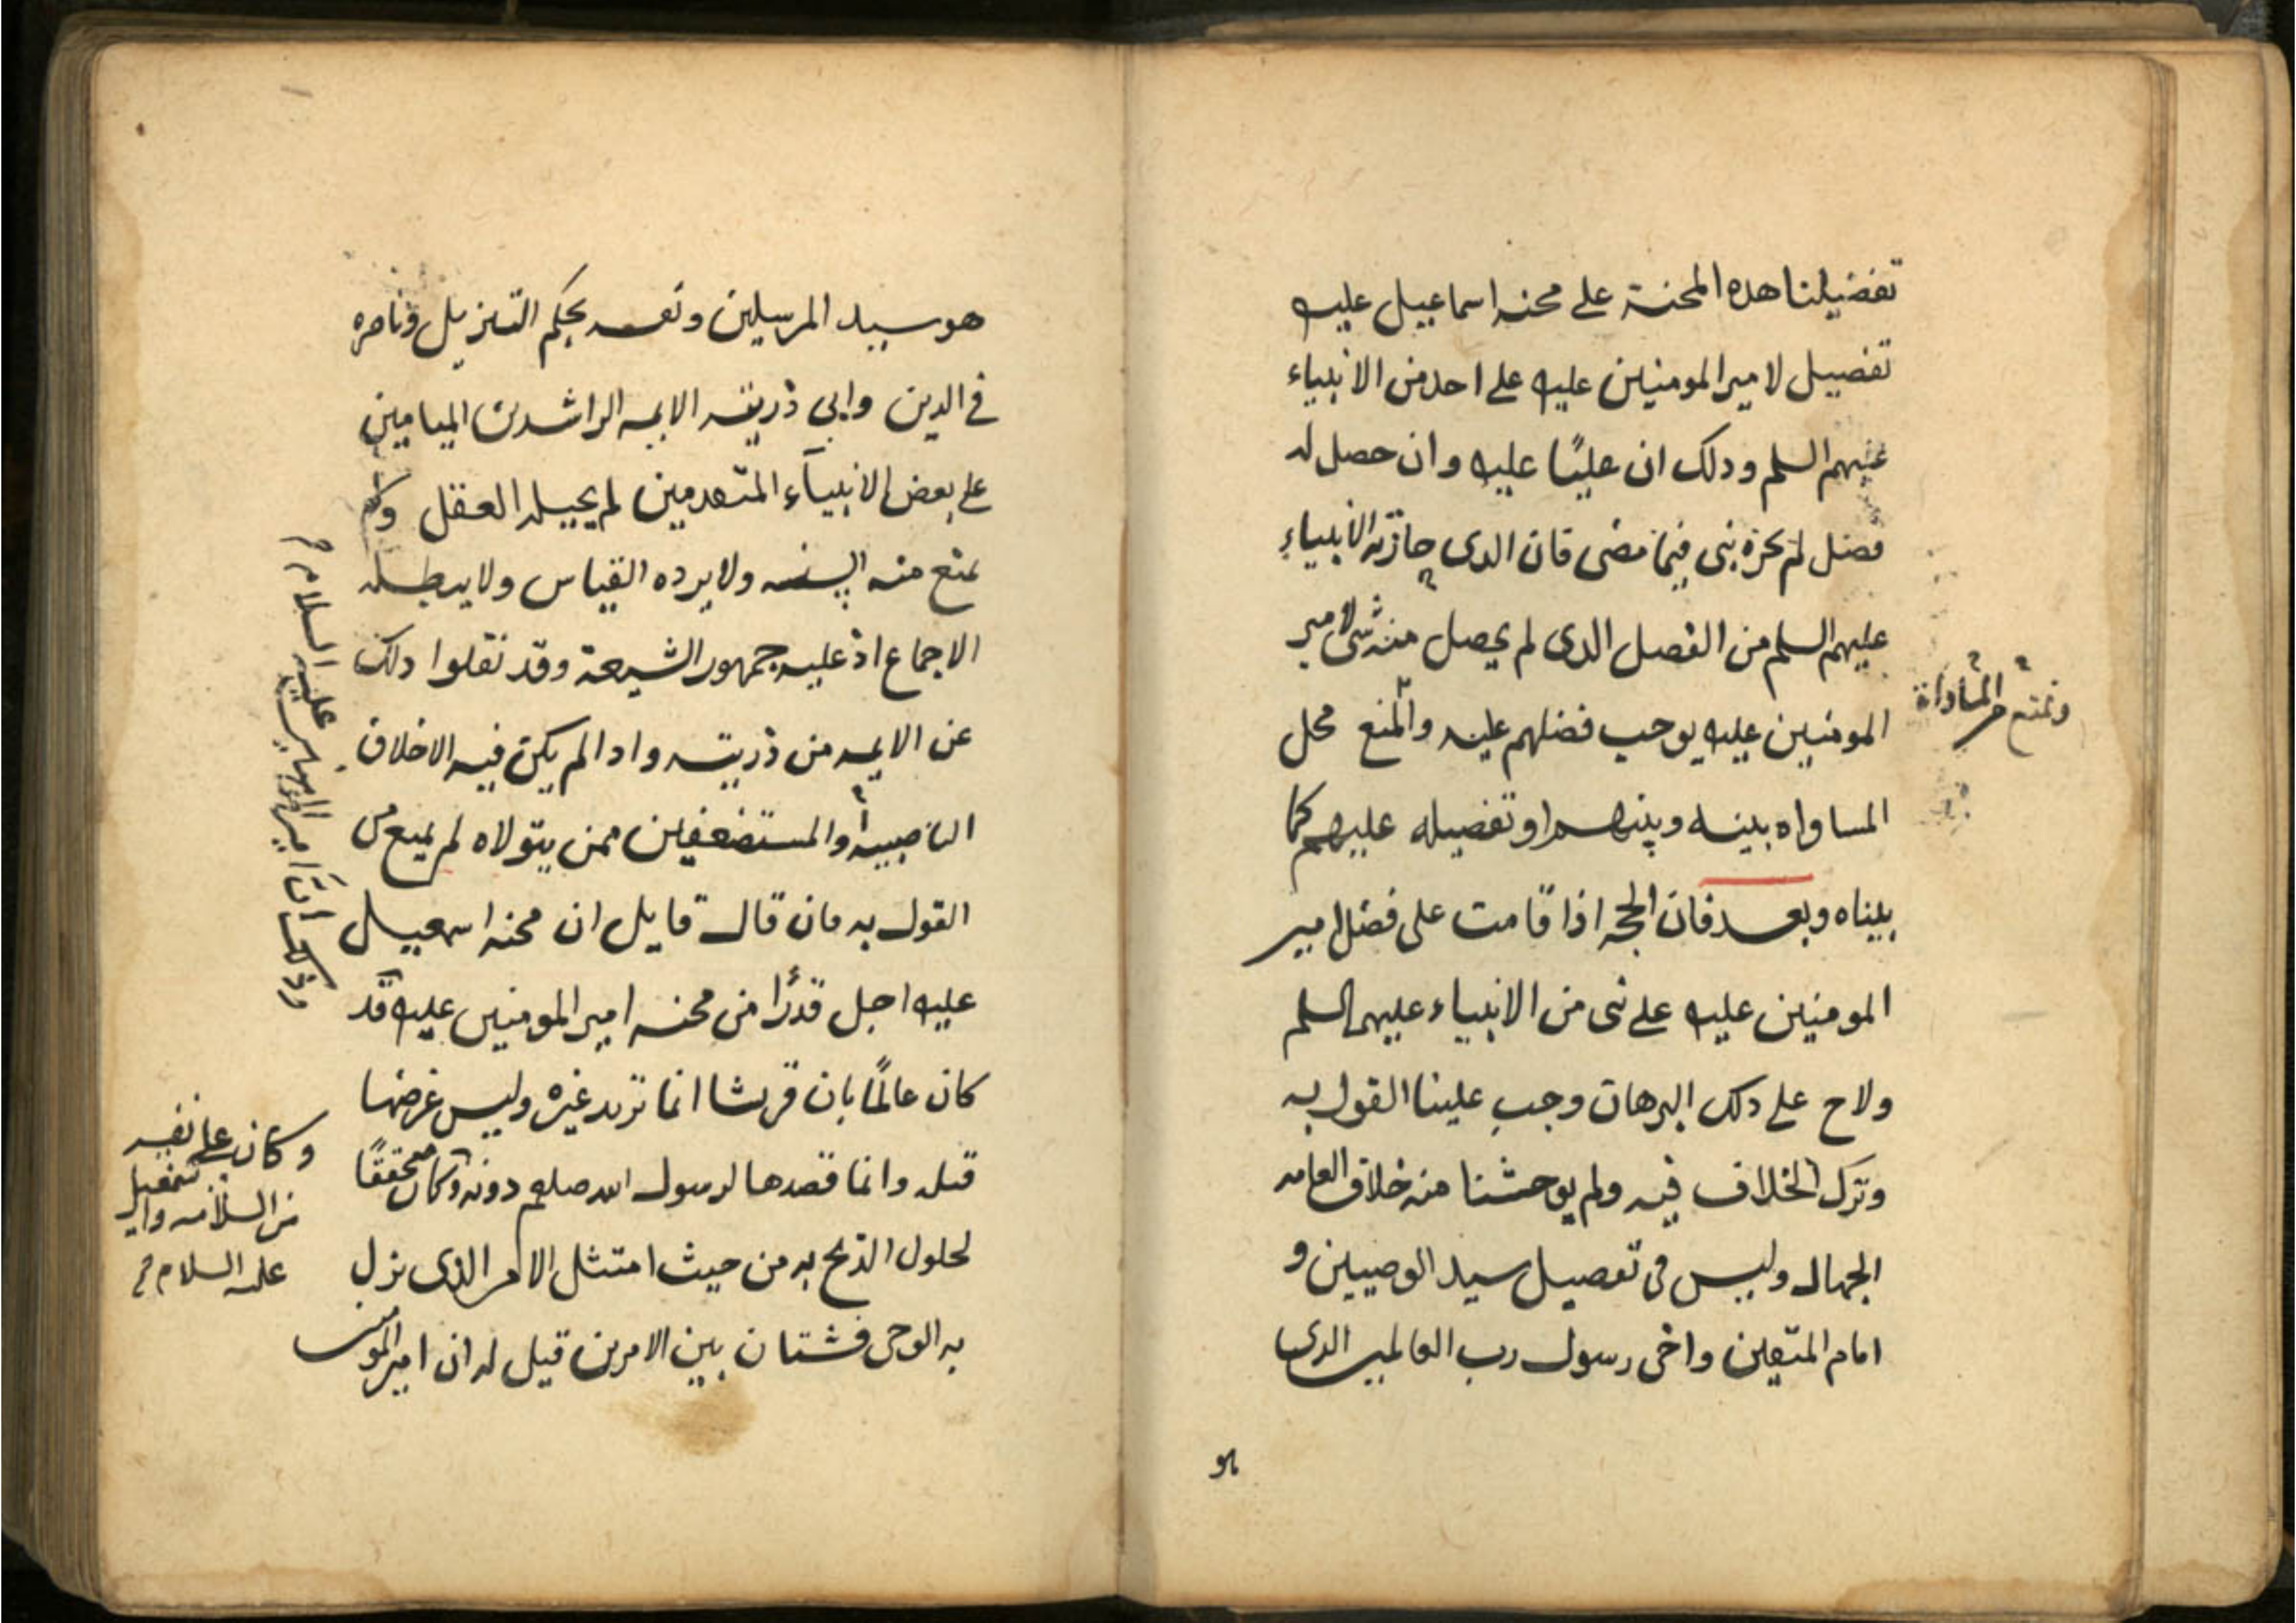 تفضيلنا هذه المحنة على محنه اسماعيل عليه
تفضيل لامير المومنين عليه على احد من الانبياء
عليهم السلم ودلك ان عليًا عليه وان حصل له
فضل لم يحزه نبى فيما مضى فان الدى حازته الانبياء
عليهم السلم من الفضل الدى لم يحصل منه شى لامير
المومنين عليه يوجب فضلهم عليه والمنع محل
المساواه بينه وبينهم او تفضيله عليهم كما
بيناه وبعد فان الحجه اذا قامت على فضل امير
المومنين عليه على نبى من الانبياء عليهم السلم
ولاح على دلك البرهان وجب علينا القول به
وترك الخلاف فيه ولم يوحشنا منه خلاف العامه
الجهال وليس فى تفضيل سيد الوصيين و
امام المتقين واخى رسول رب العالمين الدى
هو
ونمتنع من المساواة
هو سيد المرسلين ونفسه بحكم التنزيل وناصره
فى الدين وابى ذريته الايمه الراشدين الميامين
على بعض الانبياء المتقدمين لم يحيله العقل ولا
يمنع منه السنه ولا يرده القياس ولا يبطله
الاجماع اذ عليه جمهور الشيعة وقد نقلوا دلك
عن الايمه من ذريته وادا لم يكن فيه الاخلاف
الناصبيه او المستضعفين ممن يتولاه لم يمنع من
القول به فان قال قايل ان محنه اسمعيل
عليه اجل قدرًا من محنه امير المومنين عليه قد
كان عالمًا بان قريشا انما تريد غيره وليس غرضها
قتله وانما قصدها لرسول الله صلعم دونه وكان محققًا
لحلول الذبح به من حيث امتثل الامر الذى نزل
به الوحى فشتان بين الامرين قيل له ان امير المومنين
ودلك ان امير المومنين عليه السلام
وكان على ثقه
من السلامه واسمعيل
عليه السلام